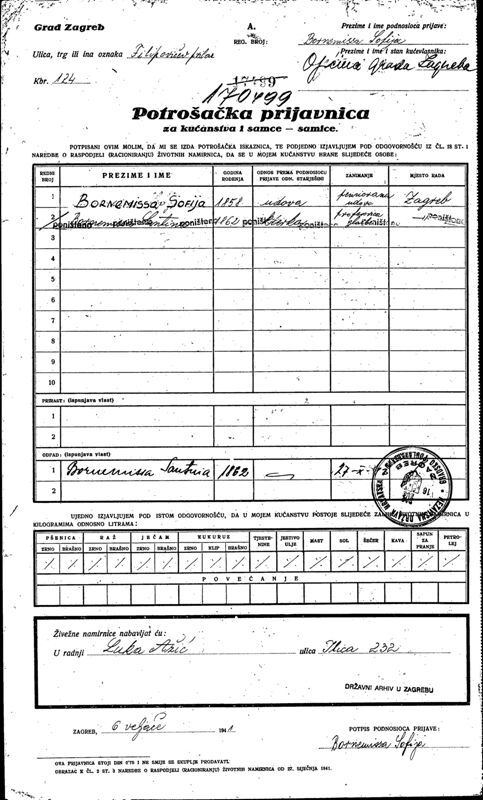 Grad Zagreb
A.
REG. BROJ:
Prezime i ime podnosioca prijave:
Bornemissa Sofija
Ulica, trg ili ina oznaka
Prezime i ime i stan kućevlasnika:
grada Zagreba
Kbr. 124
17499
170499
Potrošačka prijavnica
za kućanstva i samce — samice.
POTPISANI OVIM MOLIM, DA MI SE IZDA POTROŠAČKA ISKAZNICA, TE PODJEDNO IZJAVLJUJEM POD ODGOVORNOŠĆU IZ ČL. 15 ST. 1
NAREDBE O RASPODJELI (RACIONIRANJU) ŽIVOTNIH NAMIRNICA, DA SE U MOJEM KUĆANSTVU HRANE SLIJEDEĆE OSOBE:
REDNI BROJ PREZIME I IME GODINA ROĐENJA ODNOS PREMA PODNOSIOCU PRIJAVE ODN. STARJEŠINI ZANIMANJE MJESTO RADA
1 BORNEMISSA SOFIJA 1858 udova udova Zagreb
2 Bornemissa 1862 poništeno
3
4
5
6
7
8
9
10
PRIRAST: (ispunjava vlast)
1
2
OTPAD: (ispunjava vlast)
1 Bornemissa 1862 27-X-
2
UJEDNO IZJAVLJUJEM POD ISTOM ODGOVORNOŠĆU, DA U MOJEM KUĆANSTVU POSTOJE SLIJEDEĆE
KILOGRAMIMA ODNOSNO LITRAMA:
PŠENICA RAŽ JEČAM KUKURUZ TJESTENINE JESTIVO ULJE MAST SOL ŠEĆER KAVA SAPUN ZA PRANJE PETROLEJ
ZRNO BRAŠNO ZRNO BRAŠNO ZRNO BRAŠNO ZRNO KLIP BRAŠNO
POVEĆANJE
Živežne namirnice nabavljat ću:
U radnji Luka Ažić ulica Ilica 232
DRŽAVNI ARHIV U ZAGREBU
ZAGREB, 6 veljače 1941
POTPIS PODNOSIOCA PRIJAVE:
Bornemissa Sofija
OVA PRIJAVNICA STOJI DIN 0'75 I NE SMIJE SE SKUPLJE PRODAVATI.
OBRAZAC K ČL. 2 ST. 3 NAREDBE O RASPODJELI (RACIONIRANJU) ŽIVOTNIH NAMIRNICA OD 27. SIJEČNJA 1941.